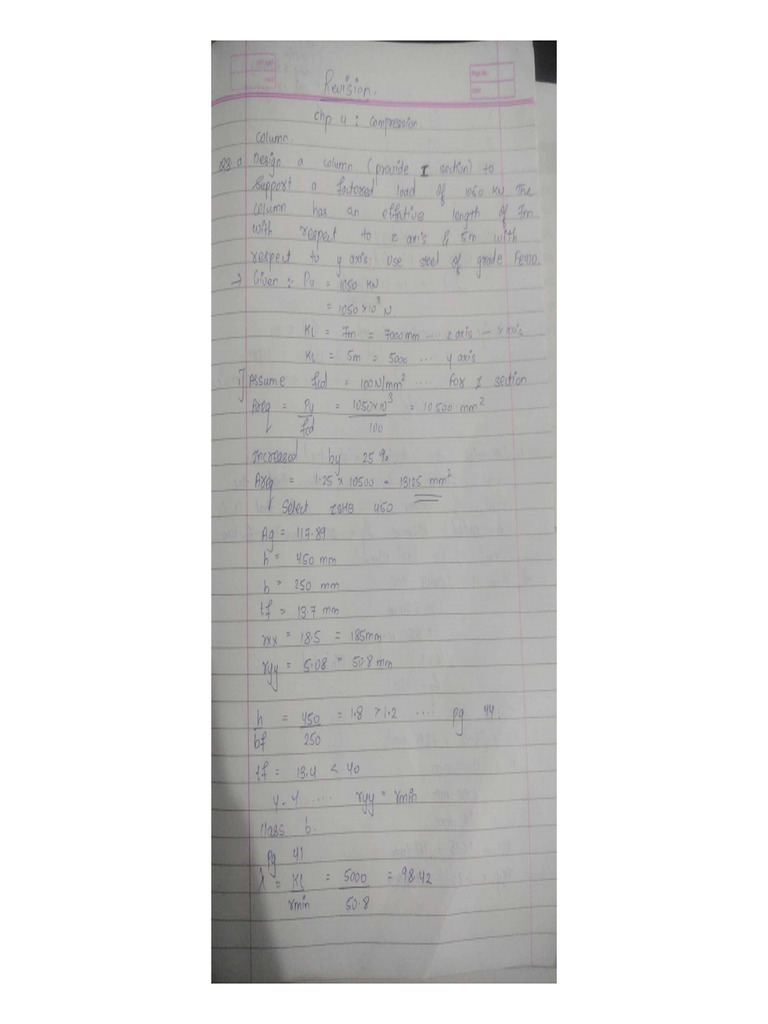 Revision.
Chp 4 : Compression
column.
Design a column (provide I section) to
Support a factored load of 1050 KN The
column has an effective length of 7m
with respect to z axis & 5m with
respect to y axis. Use steel of grade
→ Given :: Pu = 1050 KN
= 1050 × 10³ N
KL = 7m = 7000 mm ... z axis
KL = 5m = 5000 ... y axis
1] Assume fcd = 100 N/mm² .... For I section
Areq = Pu / fcd = 1050×10³ / 100 = 10500 mm²
Increased by 25 %.
Areq = 1.25 × 10500 = 13125 mm²
Select ISHB 450
Ag = 117.89
h = 450 mm
b = 250 mm
tf = 13.7 mm
rxx = 18.5 = 185mm
ryy = 5.08 = 50.8 mm
h / bf = 450 / 250 = 1.8 > 1.2 .... pg 44.
tf = 13.4 < 40
y-y .... ryy = rmin
class b.
Pg 41
λ = KL / rmin = 5000 / 50.8 = 98.42